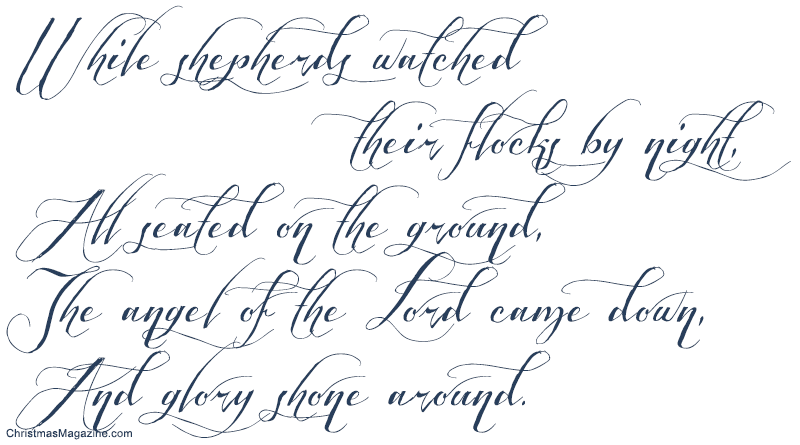 While shepherds watched
their flocks by night,
All seated on the ground,
The angel of the Lord came down,
And glory shone around.
ChristmasMagazine.com